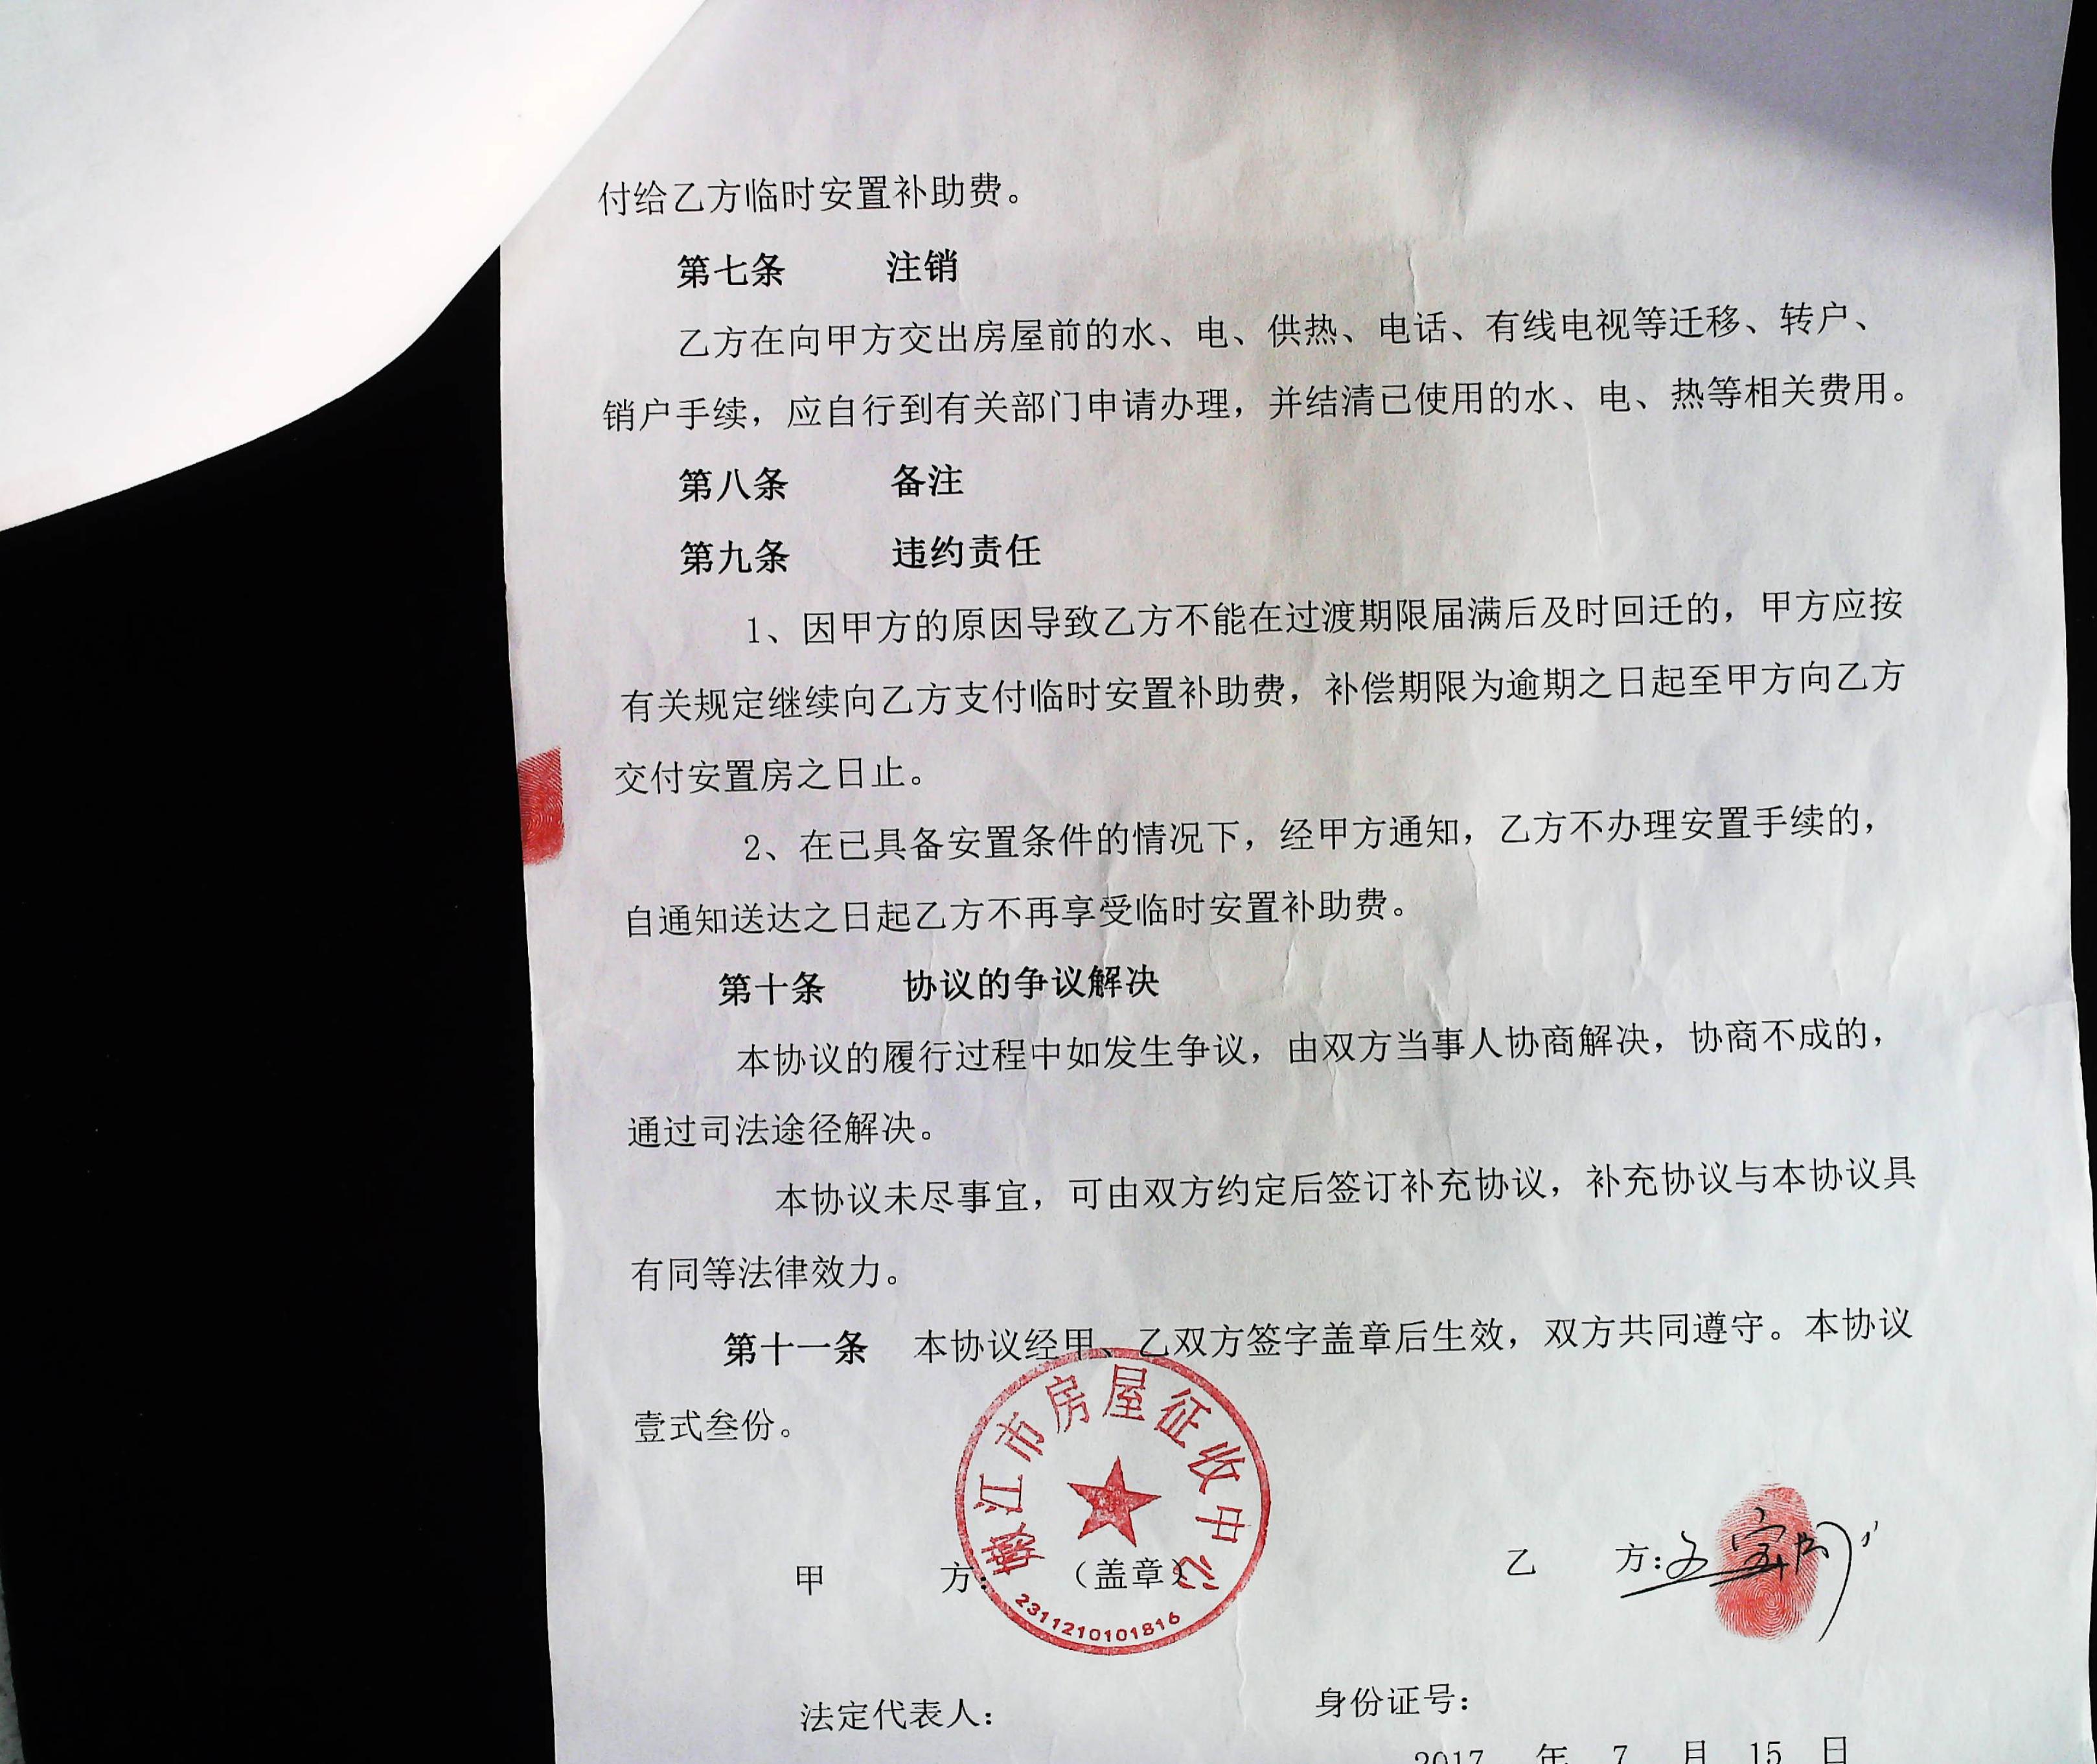 付给乙方临时安置补助费。
第七条 注销
乙方在向甲方交出房屋前的水、电、供热、电话、有线电视等迁移、转户、
销户手续，应自行到有关部门申请办理，并结清已使用的水、电、热等相关费用。
第八条 备注
第九条 违约责任
1、因甲方的原因导致乙方不能在过渡期限届满后及时回迁的，甲方应按
有关规定继续向乙方支付临时安置补助费，补偿期限为逾期之日起至甲方向乙方
交付安置房之日止。
2、在已具备安置条件的情况下，经甲方通知，乙方不办理安置手续的，
自通知送达之日起乙方不再享受临时安置补助费。
第十条 协议的争议解决
本协议的履行过程中如发生争议，由双方当事人协商解决，协商不成的，
通过司法途径解决。
本协议未尽事宜，可由双方约定后签订补充协议，补充协议与本协议具
有同等法律效力。
第十一条 本协议经甲、乙双方签字盖章后生效，双方共同遵守。本协议
壹式叁份。
嫩江市房屋征收中心
2311210101816
甲 方：（盖章） 乙 方：
法定代表人： 身份证号：
2017 年 7 月 15 日